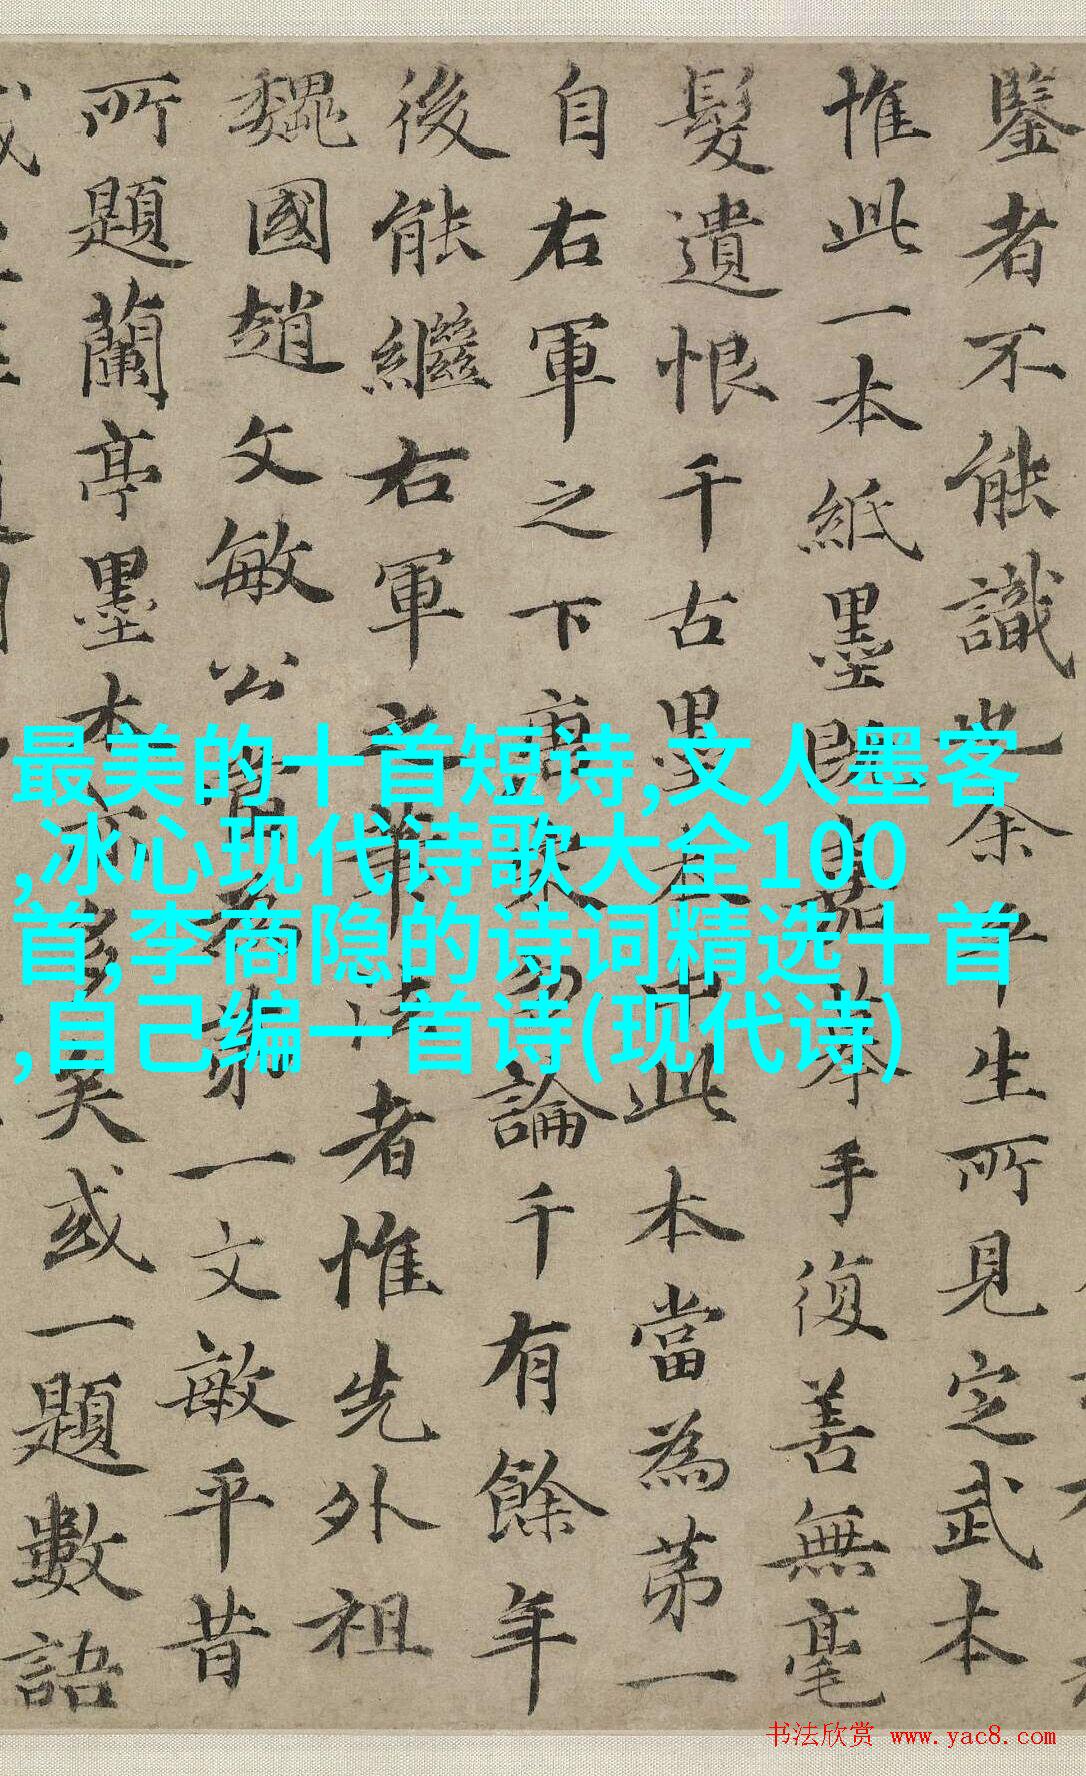 鑒者不能識也余平生所見定武本
惟此一本紙墨既嘉摹手復善無毫
髮遺恨千古墨本中此本當為苐一
自右軍之下唐宋勿論千有餘年
後能繼右軍之筆法者惟先外祖
魏國趙文敏公為苐一文敏平昔
所題蘭亭墨本亦多矣或一題數語
最美的十首短诗,文人墨客
,冰心现代诗歌大全100
首,李商隐的诗词精选十首
,自己编一首诗(现代诗)
书法欣赏 www.yac8.com